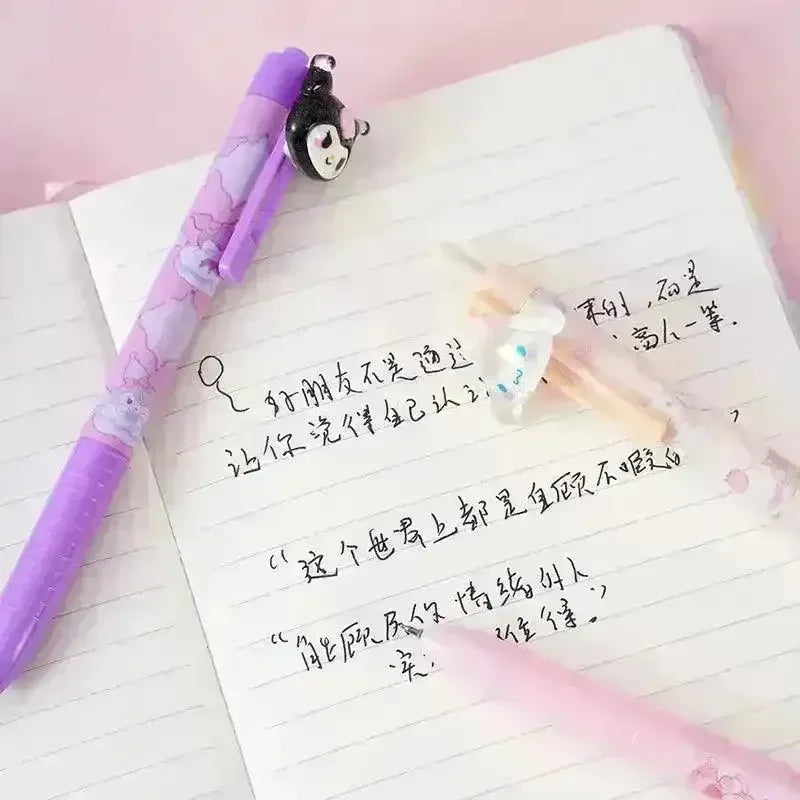 好朋友不是通过 来的，而是
让你觉得自己认 高人一等.
“这个世界上都是自顾不暇的
“能顾及你情绪的人
实 难得.”